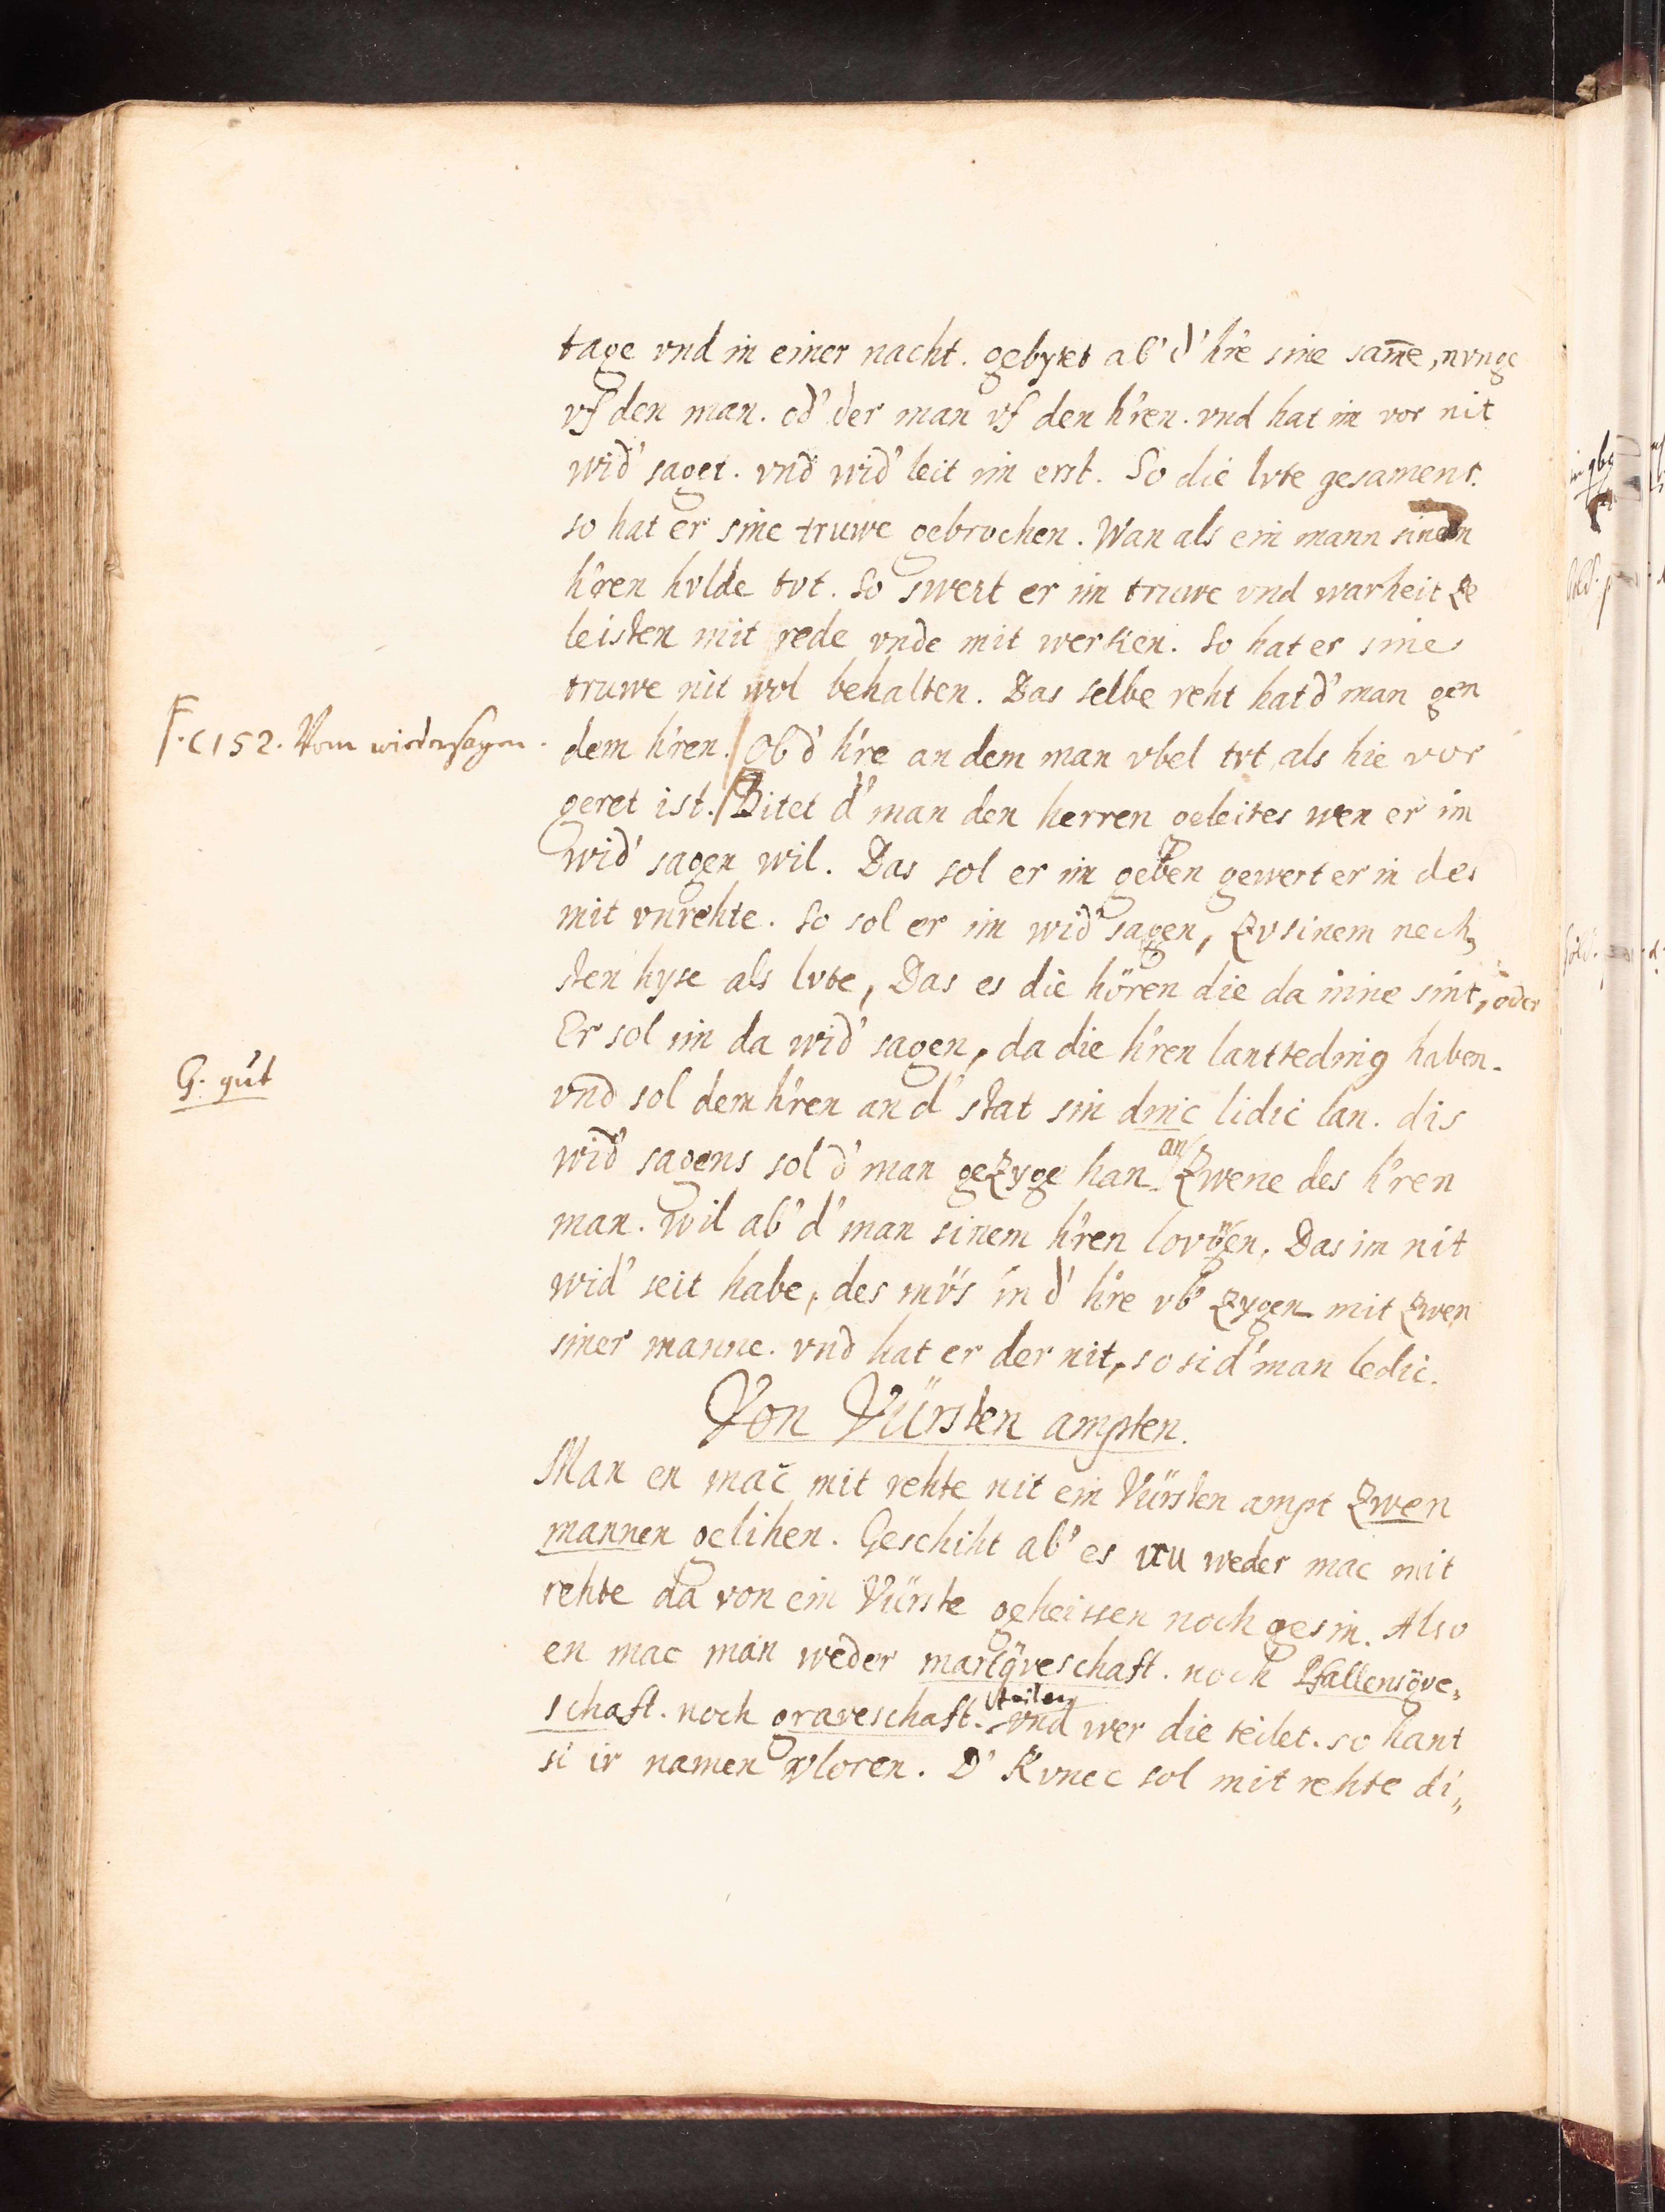 tage vnd in einer nacht. gebytet ab' d' h're sine same, nvnge
vf den man. od' der man vf den h'ren. vnd hat im vor nit
wid' saget. vnd wid' leit im erst. So die lvte gesament.
so hat er sine truwe gebrochen. Wan als ein mann sinem
h'ren hvlde tvt. So swert er im truwe vnd warheit ze
leisten mit rede vnde mit werken. So hat er sine
truwe nit wol behalten. Das selbe reht hat d' man gen
F. c 152. Vom wiedersagen.
dem h'ren. Ob d' h're an dem man vbel tvt, als hie vor
geret ist. Bitet d' man den herren geleites wen er im
wid' sagen wil. Das sol er im geben gewert er in des
mit vnrehte. So sol er im wid' sagen, zv sinem nech,
sten hyse als lvte, Das es die hören die da inne sint, oder
Er sol im da wid' sagen, da die h'ren lantteding haben.
G. gút
vnd sol dem h'ren an d' stat sin dinc lidic lan. dis
wid' sagens sol d' man gezyge han an zwene des h'ren
man. Wil ab' d' man sinem h'ren lovgen, Das im nit
wid' seit habe, des mvs in d' h're vb' zygen mit zwen
siner manne. vnd hat er der nit, so si d' man ledic.
Von Vürsten ampten.
Man en mac mit rehte nit ein Vürsten ampt zwen
mannen gelihen. Geschiht ab' es weder mac mit
rehte da von ein Vürste geheissen noch gesin. Also
en mac man weder marcgveschaft. noch Pfallensgve,
schaft. noch graveschaft. teilen vnd wer die teilet. so hant
si ir namen vloren. D' Kvnec sol mit rehte di,,